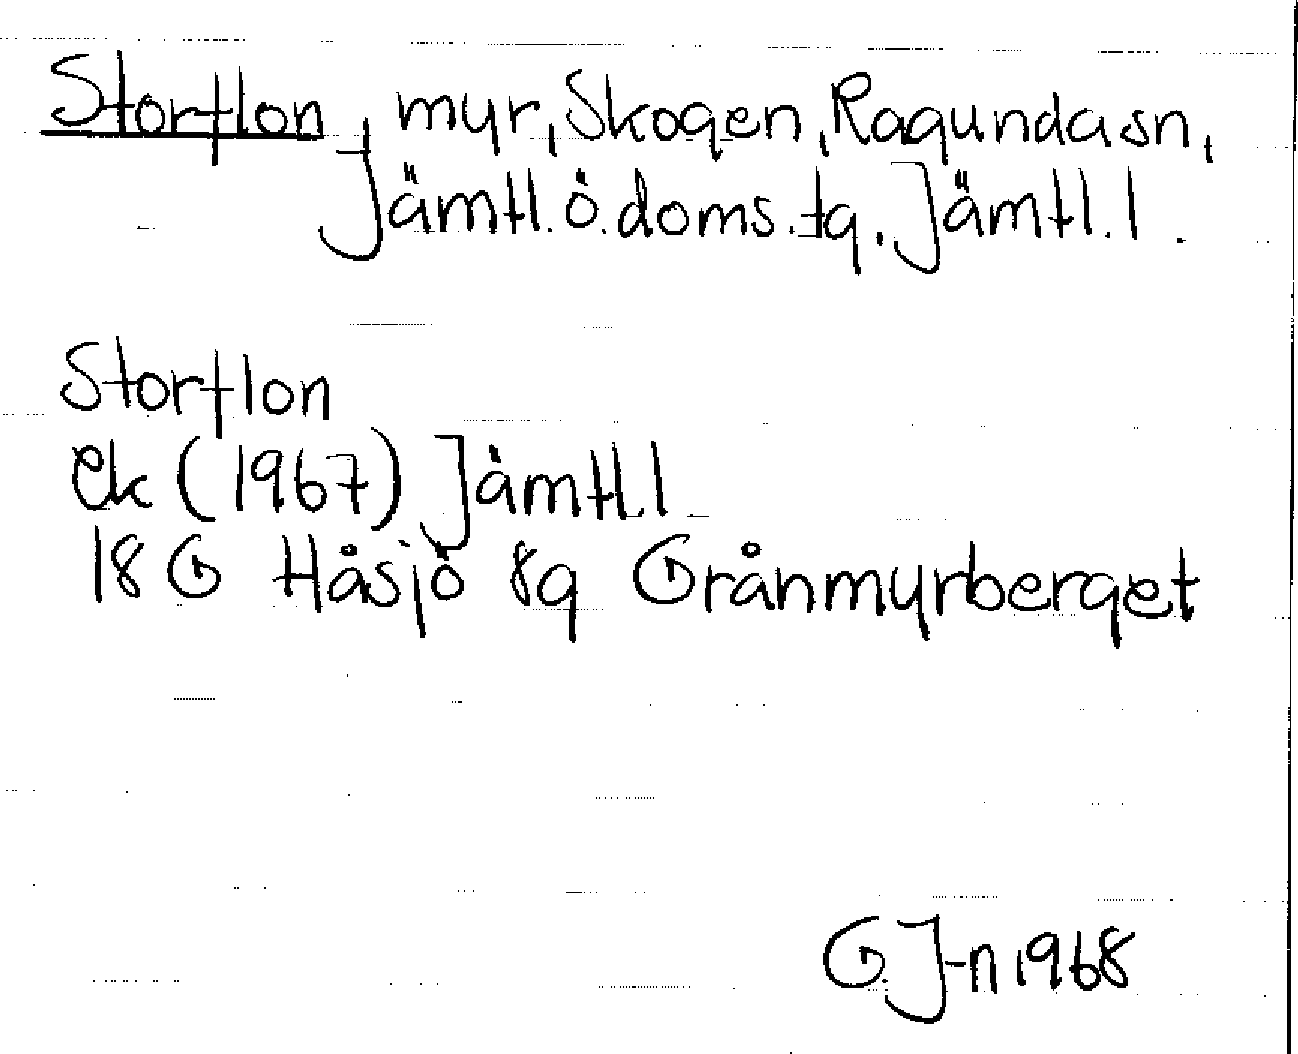 Storflon, myr, Skogen, Ragunda sn,
Jämtl. ö. doms. tg, Jämtl. l.
Storflon
ek (1967) Jämtl. l
18 G Håsjö 8g Grånmyrberget
G. J-n 1968